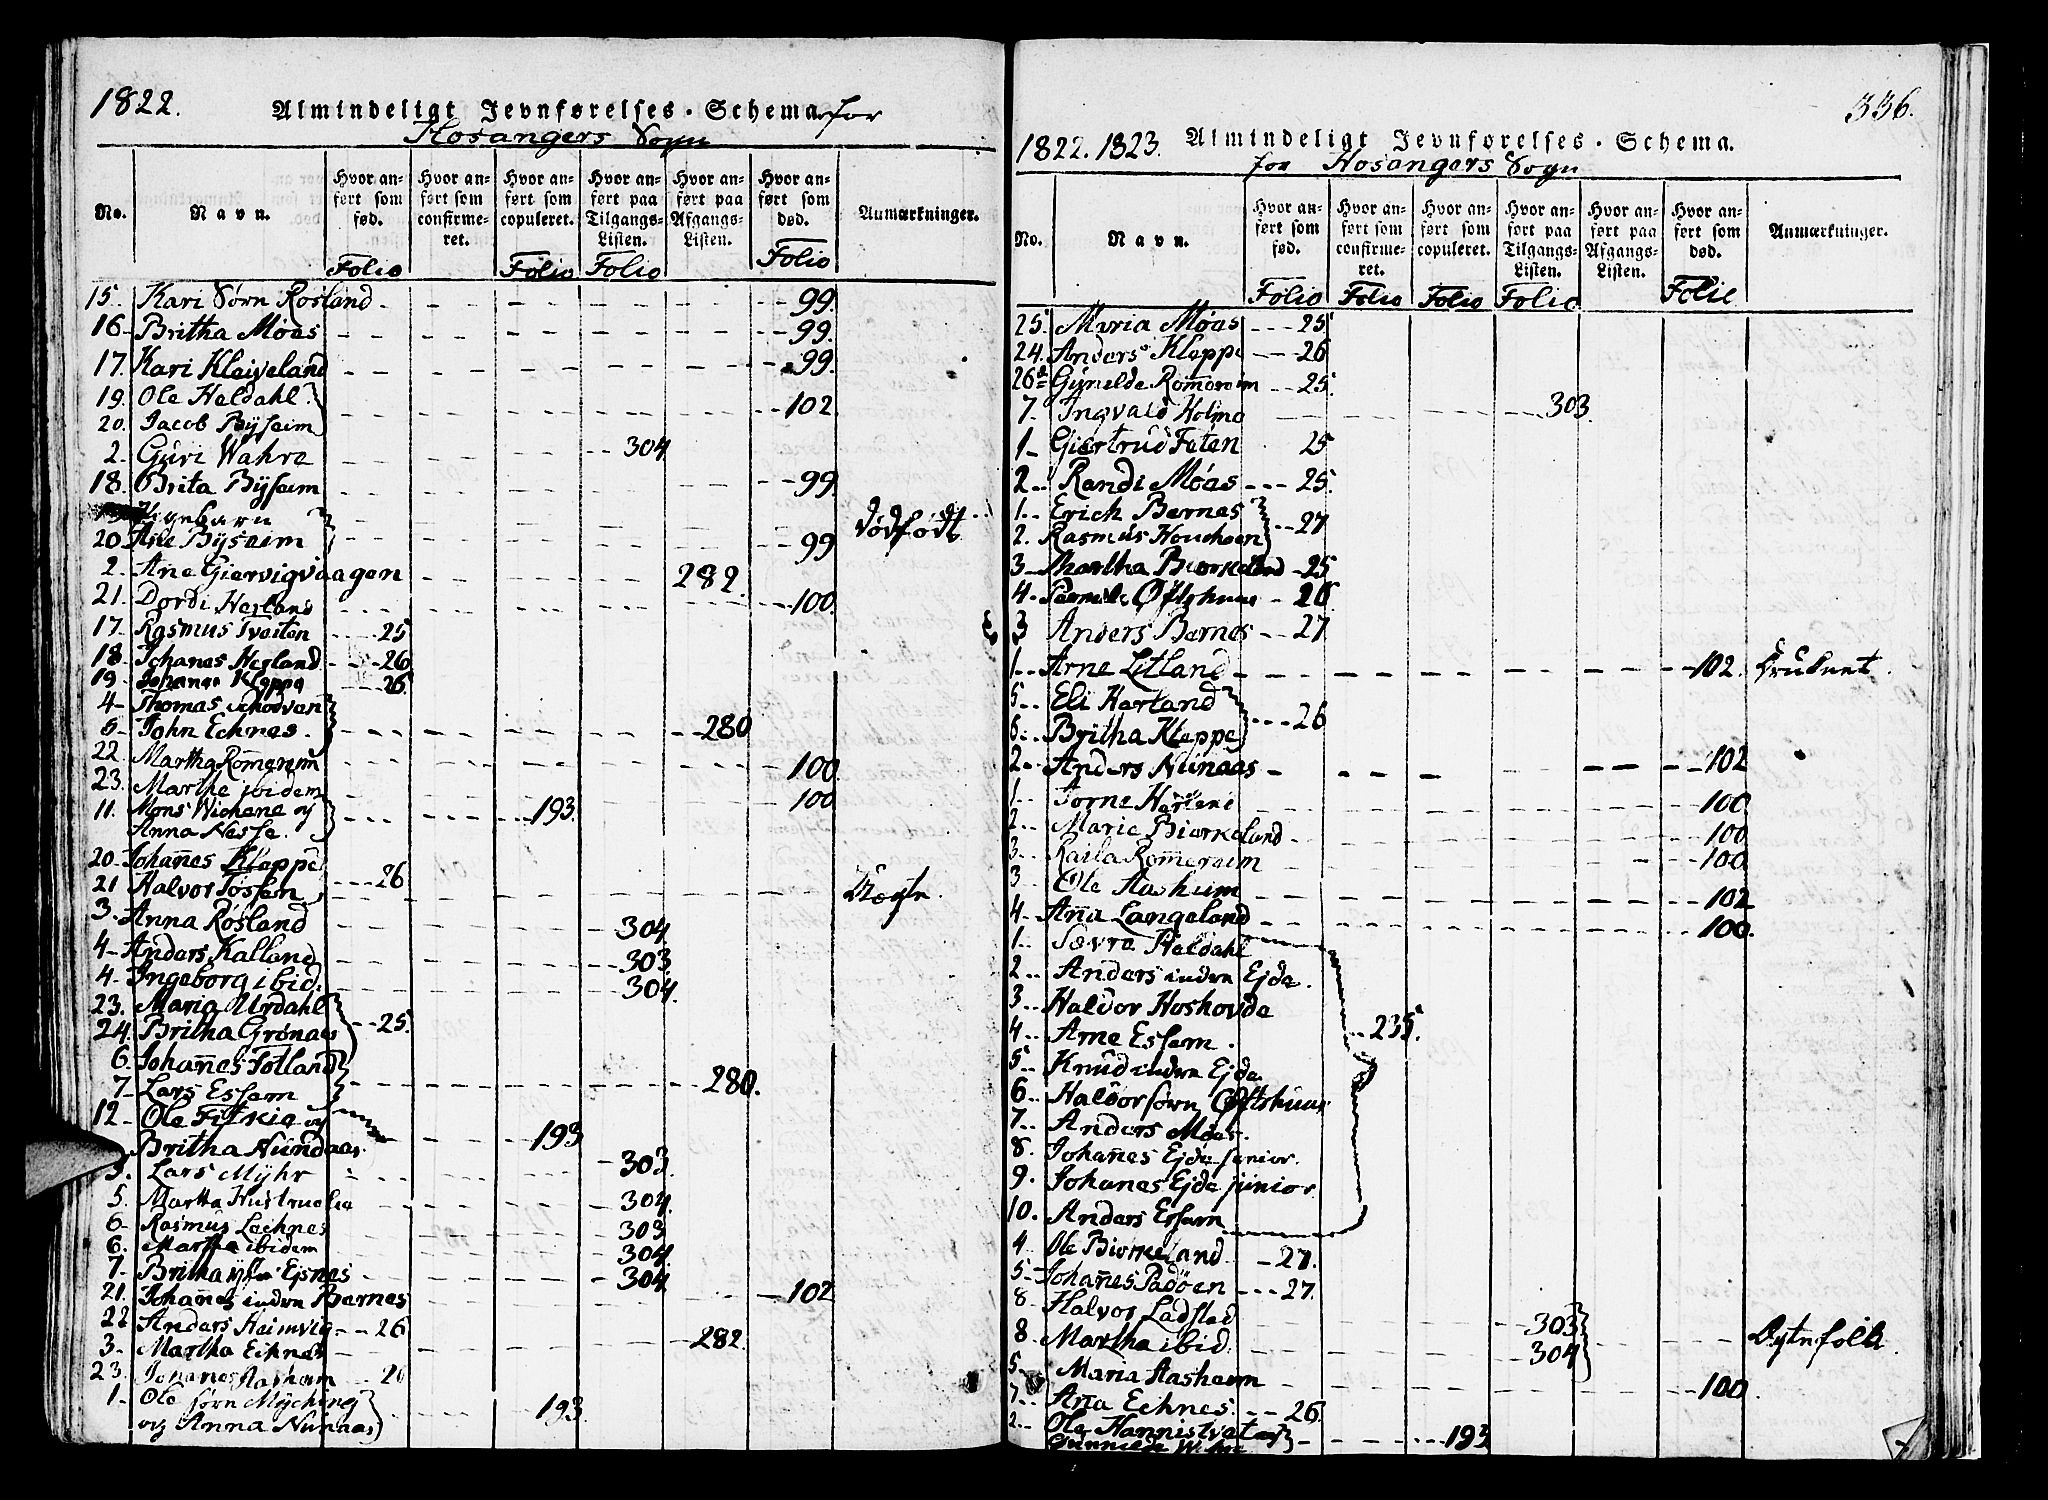 1822.
Almindeligt Jevnførelses-Schema for
Hosangers Sogn
No.
Navn.
Hvor anført som fød.
Hvor anført som confirmeret.
Hvor anført som copuleret.
Hvor anført paa Tilgangs-Listen.
Hvor anført paa Afgangs-Listen.
Hvor anført som død.
Anmærkninger.
Folio Folio Folio Folio
15. Kari Sørn Rosland 99.
16 Britha Møas 99.
17. Kari Kleiveland 99.
19. Ole Heldahl 102
20. Jacob Byseim
2. Guri Wahre 304
18. Brita Byseim 99.
dødfødt
20 Ane Byseim 99
2. Ane Giervigvaagen 282.
21. Dordi Herland 100.
17. Rasmus Tveiten 25
18. Johanes Herland 26
19 Johanes Kleppe 26
4 Thomas
5 John Echnes. 280
22. Martha Romereim 100
23. Marthe ibidem 100
11. Mons Wichene og 193.
Anna Nesse.
20 Johannes Kleppe 26
21 Halvor Tøssen
3. Anna Røsland 304
4 Anders Kalland 303
4 Ingeborg ibid. 304.
23. Maria Urdahl 25.
24. Britha Grønaes
6. Johannes Fotland
7. Lars Essem 280.
12 Ole Fitskie og
Britha Nundaas 193
5. Lars Myhr 303
5. Martha 304
6 Rasmus Lechnes 303
6. Martha ibidem 304
7. Britha Ejsnes 304
21. Johannes indre Bernes 102
22 Anders Heimvig 26
3. Martha Echnes 282
23. Johanes Aasheim 26
1. Ole sørn Myching
og Anna Nunaas 193
336.
1822. 1823. Almindeligt Jevnførelses-Schema.
for Hosangers Sogn
No.
Navn.
Hvor anført som fød.
Hvor anført som confirmeret.
Hvor anført som copuleret.
Hvor anført paa Tilgangs-Listen.
Hvor anført paa Afgangs-Listen.
Hvor anført som død.
Anmærkninger.
Folio Folio Folio Folio Folie
25. Maria Møas 25
24. Anders Kleppe 26
26 Gunelde Romereim 25.
7. Ingvald Holme 303
1 Giertrud Foten 25
2 Randi Møas 25.
1 Erich Bernes 27
2. Rasmus
3 Martha Biørkeland 25
4. Oftshuus 26
3 Anders Bernes 27
1 Arne Litland 102 Druknet.
5 Eli Herland 26
6. Britha Kleppe
2. Anders Nunaas 102
1. Herland 100
2. Marie Biørkeland 100
3. Raila Romereim 100
3 Ole Aasheim 102
4. Ana Langeland 100.
1. Sævre Heldahl
2 Anders indre Ejde.
3 Haldor Hoshovde
4 Arne Essem. 235.
5 Knud indre Ejde
6 Haldor sørn Oftshuus
7. Anders Møas.
8. Johannes Ejde senior.
9. Johanes Ejde junior
10. Anders Essem
4 Ole Biørkeland 27.
5 Johannes Padøen 27.
8 Halvor Ladstad 303
8 Martha ibid. 304
5. Maria Aasheim 100
7. Ana Echnes. 26.
2 Ole Hannistvet og 193